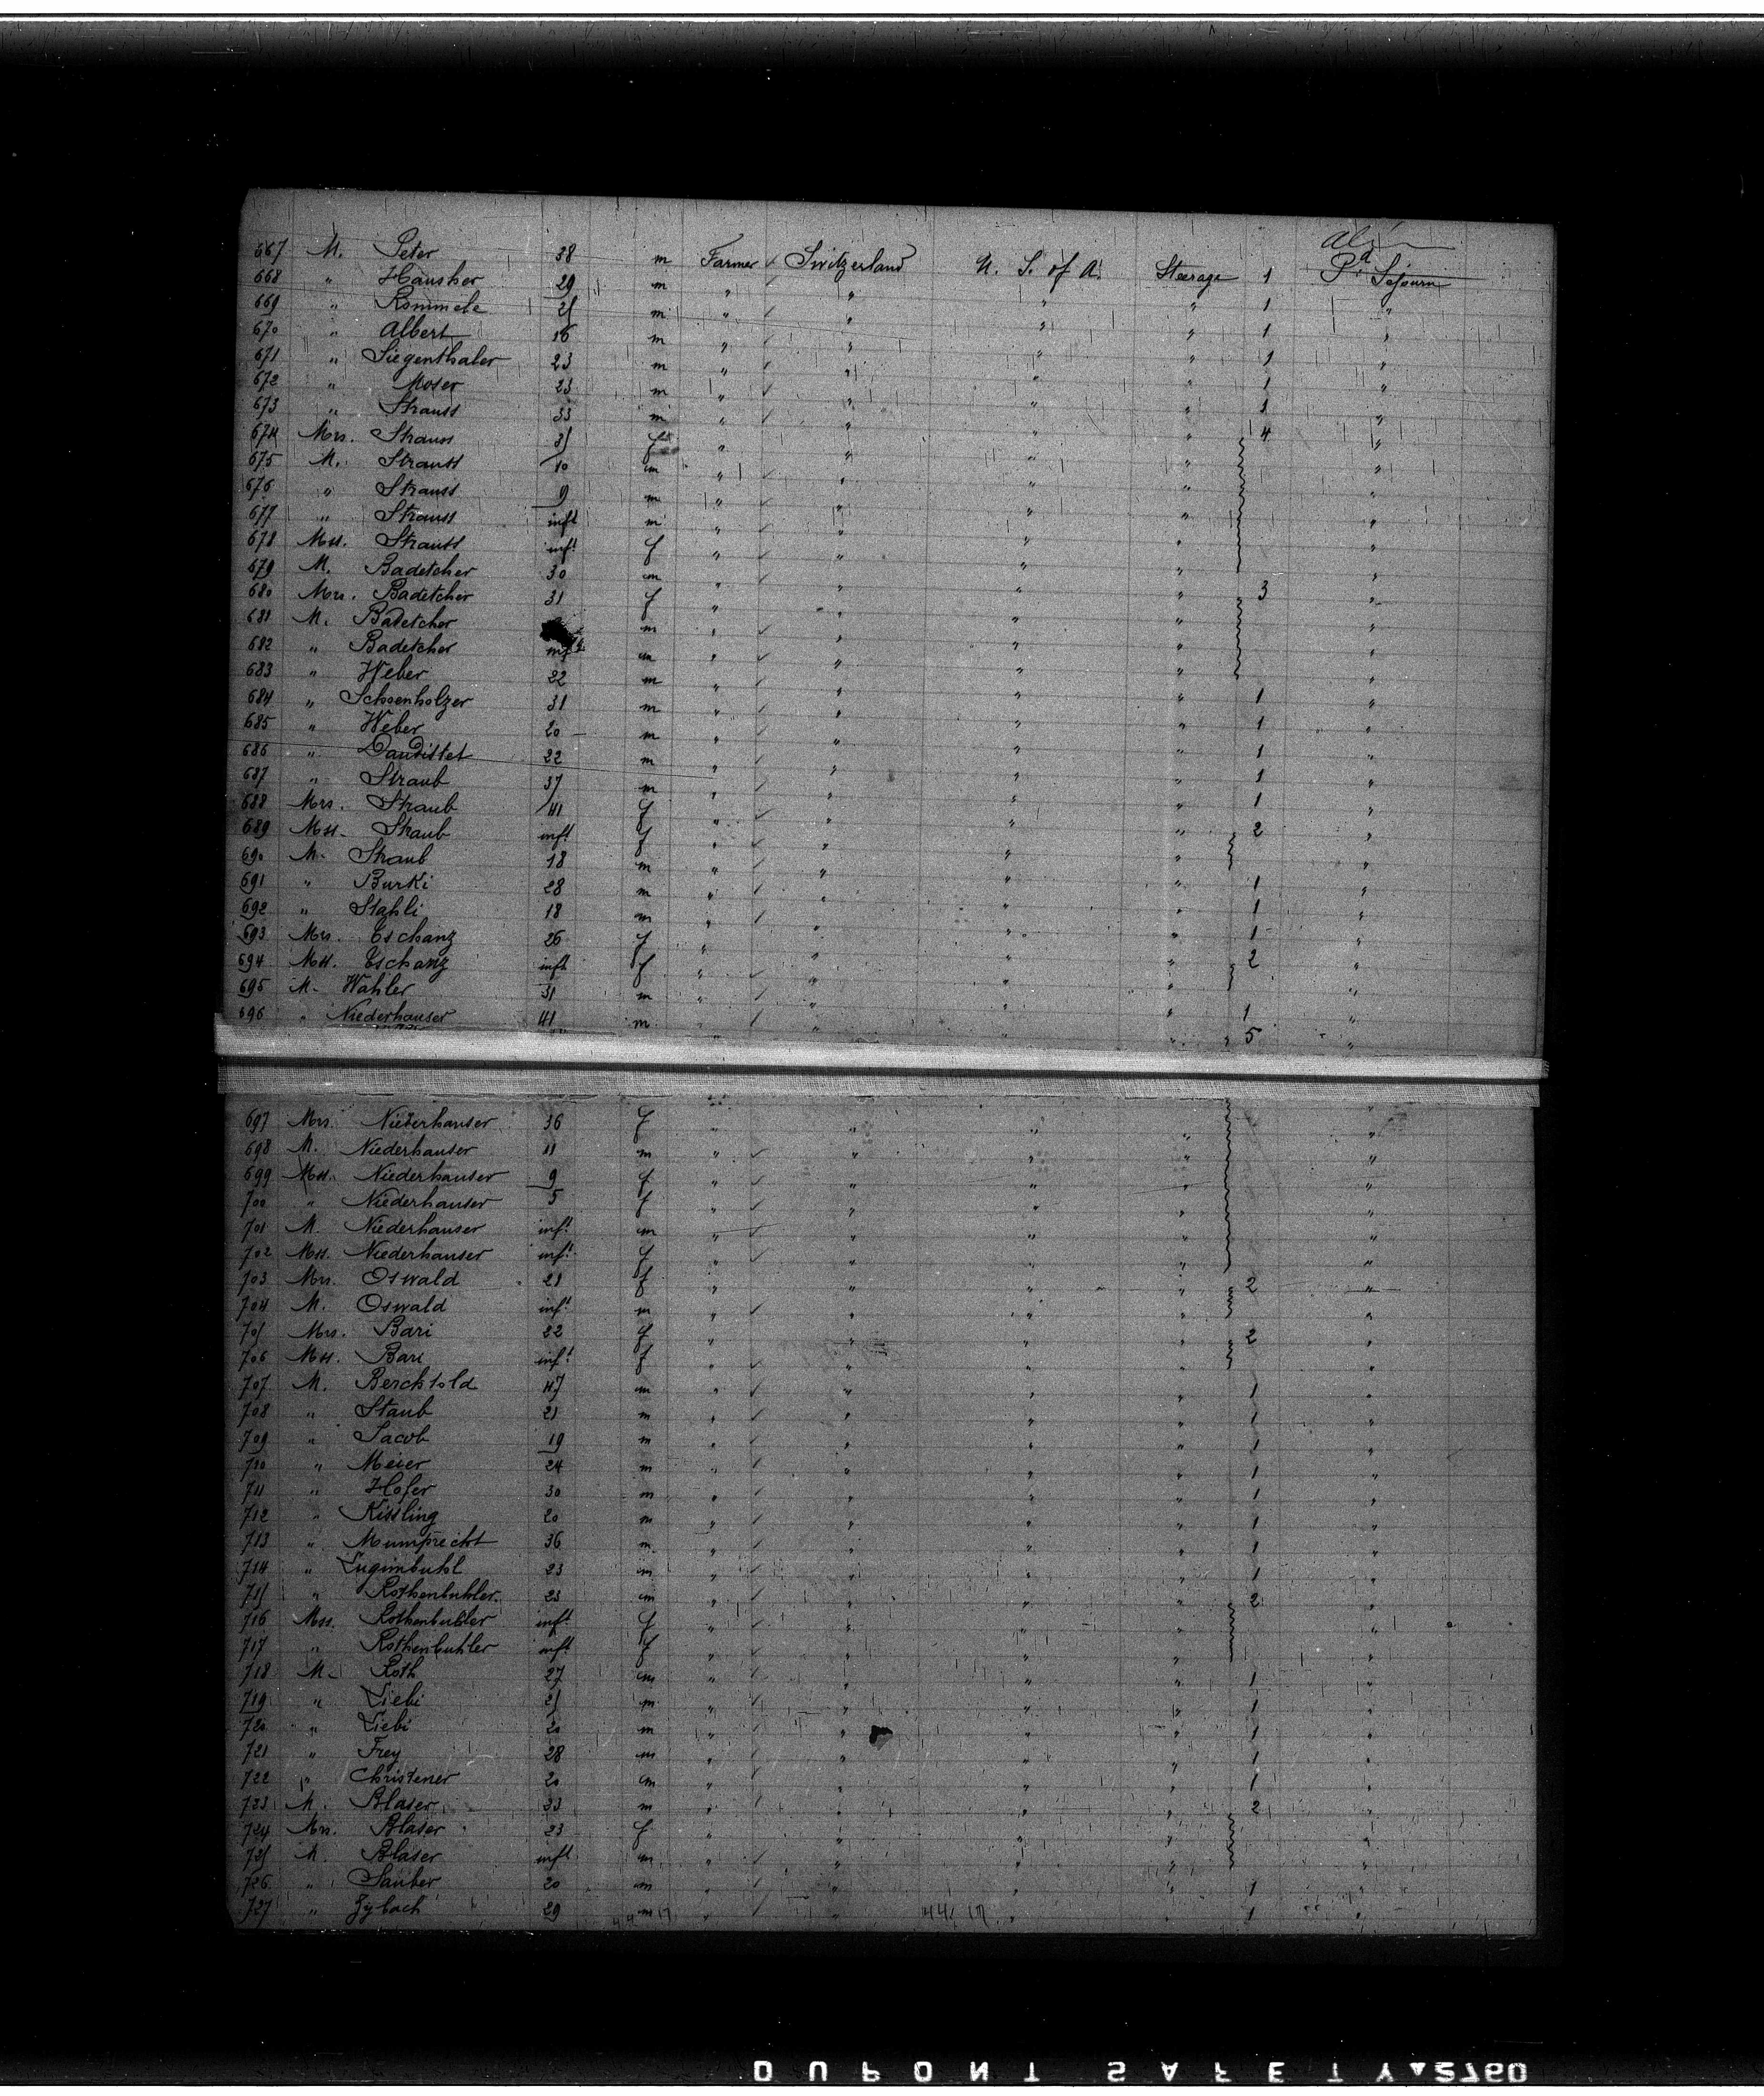 667 M. Peter 38 m Farmer Switzerland U. S. of A. Steerage 1 Pd Sejourn
668 " Hausher 29 m " " " " 1 "
669 " Rommele 25 m " " " " 1 "
670 " Albert 16 m " " " " 1 "
671 " Siegenthaler 23 m " " " " 1 "
672 " Moser 23 m " " " " 1 "
673 " Strauss 33 m " " " " 4 "
674 Mrs. Strauss 35 f " " " " "
675 M. Strauss 10 m " " " " "
676 " Strauss 9 m " " " " "
677 " Strauss inft m " " " " "
678 Mss. Strauss inft f " " " " "
679 M. Badetcher 30 m " " " " 3 "
680 Mrs. Badetcher 31 f " " " " "
681 M. Badetcher m " " " " "
682 " Badetcher inft m " " " " "
683 " Weber 22 m " " " " 1 "
684 " Schoenholzer 31 m " " " " 1 "
685 " Weber 20 m " " " " 1 "
686 " Dandistet 22 m " " " " 1 "
687 " Straub 37 m " " " " 1 "
688 Mrs. Straub 41 f " " " " 2 "
689 Mss. Straub inft f " " " " "
690 M. Straub 18 m " " " " 1 "
691 " Burki 28 m " " " " 1 "
692 " Stahli 18 m " " " " 1 "
693 Mrs. Eschanz 26 f " " " " 2 "
694 Mss. Eschanz inft f " " " " "
695 M. Wahler 31 m " " " " 1 "
696 " Niederhauser 41 m " " " " 5 "
697 Mrs. Niederhauser 36 f " " " " "
698 M. Niederhauser 11 m " " " " "
699 Mss. Niederhauser 9 f " " " " "
700 " Niederhauser 5 f " " " " "
701 M. Niederhauser inft m " " " " "
702 Mss. Niederhauser inft f " " " " "
703 Mrs. Oswald 21 f " " " " 2 "
704 M. Oswald inft m " " " " "
705 Mrs. Bari 22 f " " " " 2 "
706 Mss. Bari inft f " " " " "
707 M. Berchtold 47 m " " " " 1 "
708 " Staub 21 m " " " " 1 "
709 " Jacob 19 m " " " " 1 "
710 " Meier 24 m " " " " 1 "
711 " Hofer 30 m " " " " 1 "
712 " Kissling 20 m " " " " 1 "
713 " Mumprecht 36 m " " " " 1 "
714 " Luginbuhl 23 m " " " " 1 "
715 " Rothenbuhler 23 m " " " " 2 "
716 Mss. Rothenbuhler inft f " " " " "
717 " Rothenbuhler inft f " " " " "
718 M. Roth 27 m " " " " 1 "
719 " Liebi 25 m " " " " 1 "
720 " Liebi 20 m " " " " 1 "
721 " Frey 28 m " " " " 1 "
722 " Christener 20 m " " " " 1 "
723 M. Blaser 33 m " " " " 2 "
724 Mrs. Blaser 23 f " " " " "
725 M. Blaser inft m " " " " "
726 " Sauber 20 m " " " " 1 "
727 " Zybach 29 m " " " " 1 "
DUPONT SAFETY 2760